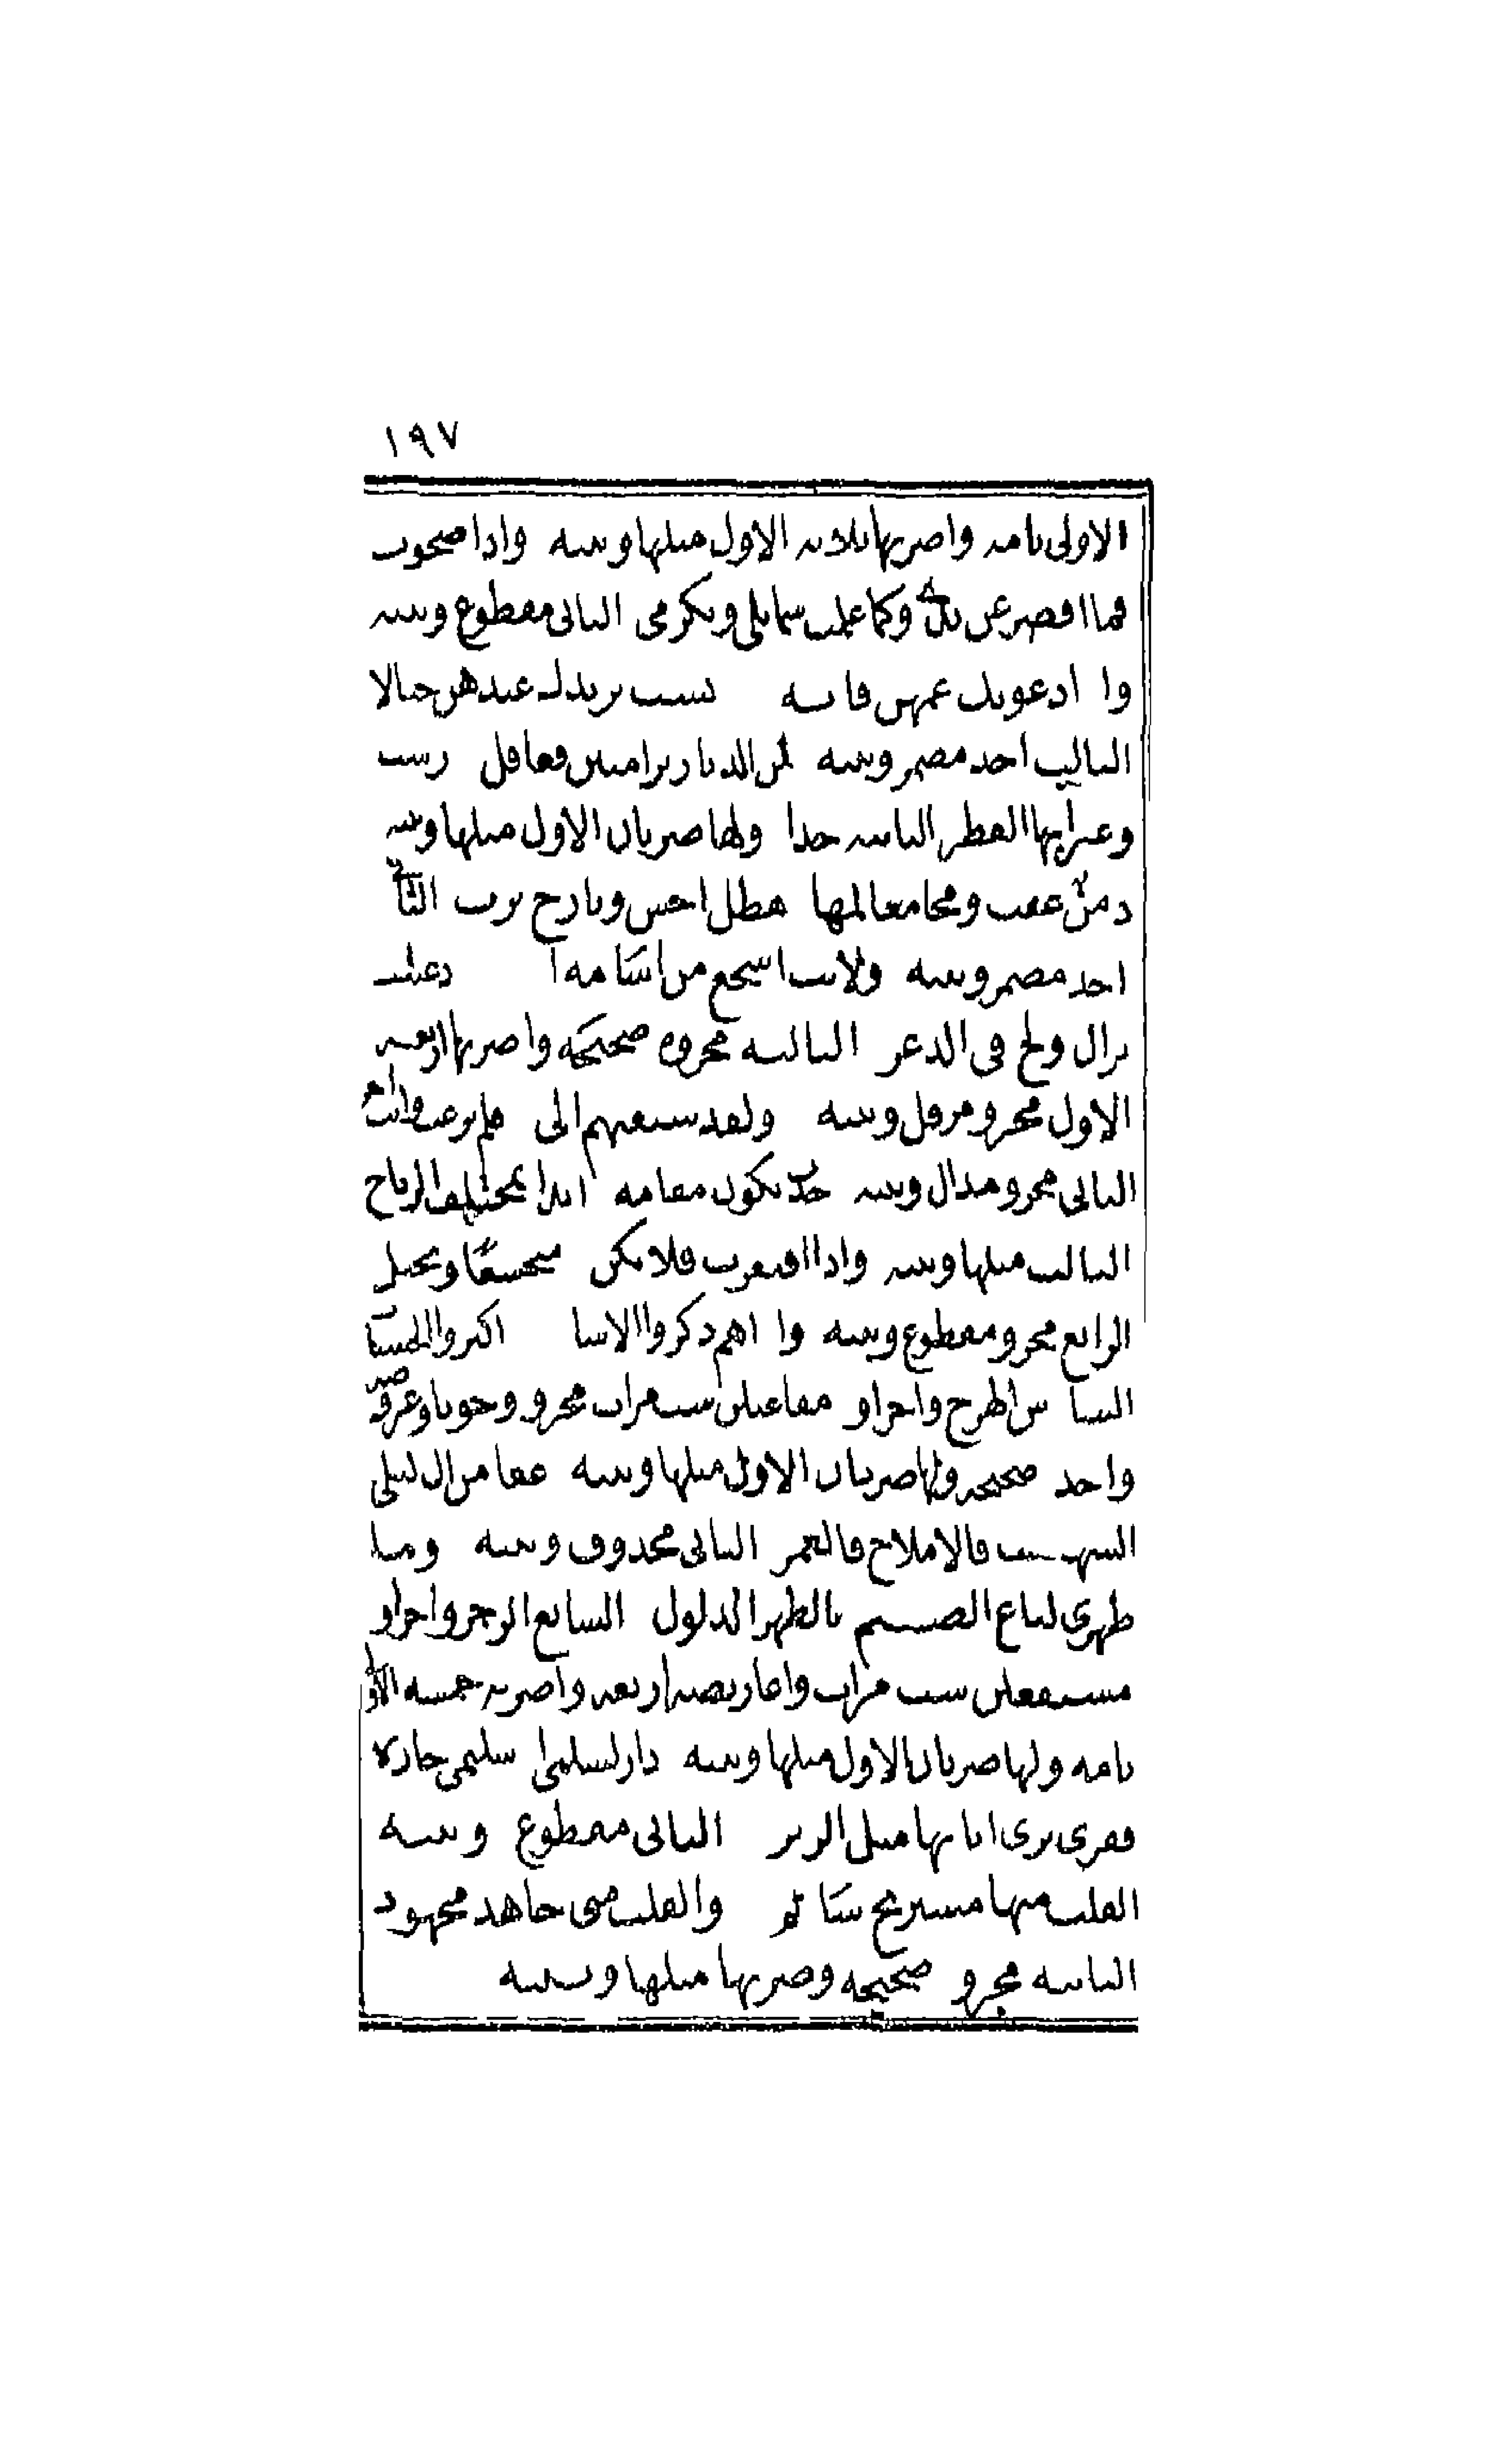 ١٩٧
الاولى تامة واضربها ثلاثة الاول مثلها وبيته واذا صحوت
فما اقصر عن ندى وكما علمت شمائلي وتكرمي الثاني مقطوع وبيته
واذا دعونك عمهن فانه نسب يزيدك عندهن خبالا
الثالث احذ مضمر وبيته لمن الديار برامتين فعاقل درست
وغير آيها القطر الثانية حذا ولها ضربان الاول مثلها وبيته
دمن عفت ومحا معالمها هطل اجش وبارح ترب الثاني
احذ مضمر وبيته ولانت اشجع من اسامة اذ دعيت
نزال ولج في الذعر الثالثة مجزوة صحيحة واضربها اربعة
الاول مجزو مرفل وبيته ولقد سبقتهم الى فلم نزعت وانت آخر
الثاني مجزو مذال وبيته جدث يكون مقامه ابدا بمختلف الرياح
الثالث مثلها وبيته واذا افتقرت فلا تكن متخشعا وتجمل
الرابع مجزو مقطوع وبيته واذا هم ذكروا الاسا اكثروا الحسنات
السادس الهزج واجزاؤه مفاعيلن ست مرات مجزو وجوبا وعروضه
واحدة صحيحة ولها ضربان الاول مثلها وبيته عفا من آل ليلى
السهب فالاملاح فالغمر الثاني محذوف وبيته وما
ظهري لباغ الضيم بالظهر الذلول السابع الرجز واجزاؤه
مستفعلن ست مرات واعاريضه اربعة واضربه خمسة الاولى
تامة ولها ضربان الاول مثلها وبيته دار لسلمى اذ سليمى جارة
قفرى ترى اياتها مثل الزبر الثاني مقطوع وبيته
القلب منها مستريح سالم والقلب مني جاهد مجهود
الثانية مجزوة صحيحة وضربها مثلها وبيته